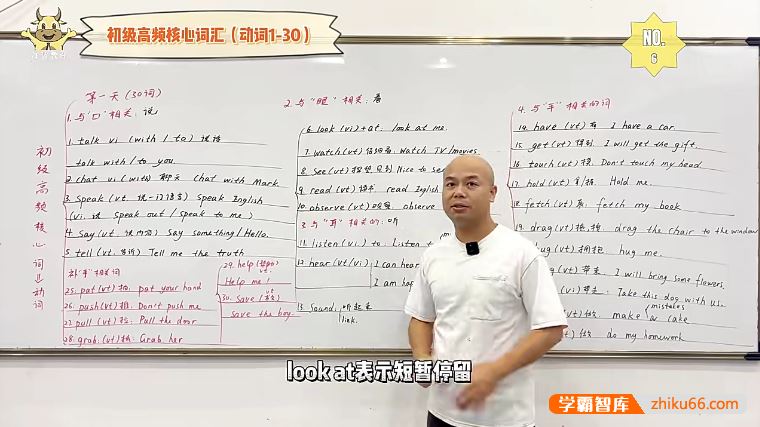 初级高频核心词汇（动词1-30）
NO.
6
第一天(30词)
1.与"口"相关:说
初级高频核心词业动词
1. talk vi (with / to) 谈话
talk with / to you
2. chat vi (with) 聊天 chat with Mark
3. speak (vt. 说一门语言) speak English
(vi. 说 speak out / speak to me)
4. Say (vt. 说内容) Say something / Hello.
5. tell (vt. 告诉) Tell me the truth
补"手"相关词
25. pat (vt) 拍. pat your hand
26. push (vt) 推. Don't push me
27. pull (vt) 拉: Pull the door
28. grab. (vt) 抓: Grab her
29. help (帮助)
vt.
Help me!
30. Save (救)
vt.
Save the boy.
2.与"眼"相关:看
6. look (vi) + at. look at me.
7. Watch (vt) Watch TV / movies.
8. See (vt) Nice to see
9. read (vt) 读书 read English
10. observe (vt) 观察. observe
3.与"耳"相关的:听
11. listen (vi) to. Listen t
12. hear (vt/vi) I can hear
I am hap
13. Sound. 听起来
link.
4.与"手"相关的词
14. have (vt) 有 I have a car.
15. get (vt) 得到 I will get the gift.
16. touch (vt) 摸. Don't touch my head
17. hold (vt) Hold me.
18. fetch (vt) fetch my book
19. drag (vt) drag the chair to the window
hug (vt) 拥抱 hug me.
(vt) 带来. I will bring some flowers.
(vt) 带走. Take this dog with us.
(vt) 做 make mistakes
a cake
(vt) 做 do my homework
look at表示短暂停留
学霸智库 zhiku66.com